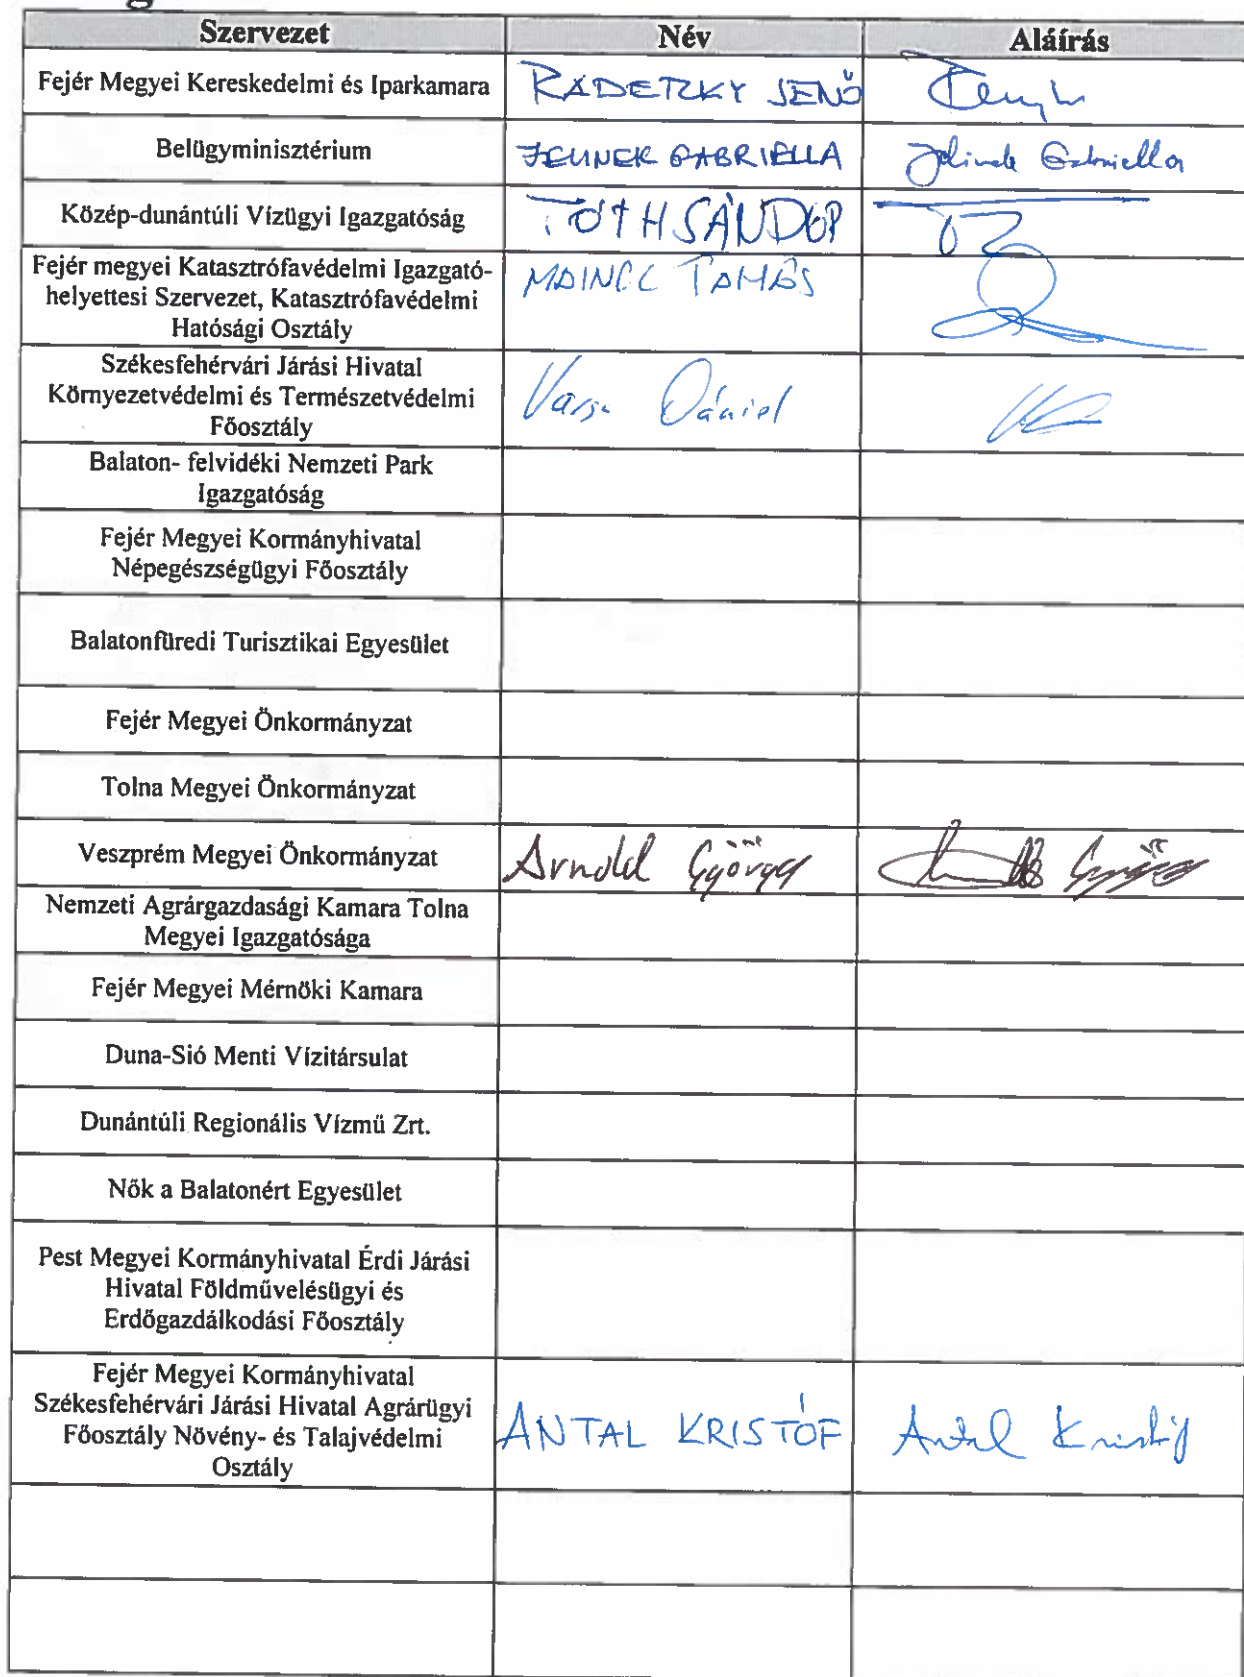 Szervezet Név Aláírás
Fejér Megyei Kereskedelmi és Iparkamara RADETZKY JENŐ
Belügyminisztérium JELINEK GABRIELLA Jelinek Gabriella
Közép-dunántúli Vízügyi Igazgatóság TÓTH SÁNDOR
Fejér megyei Katasztrófavédelmi Igazgató-
helyettesi Szervezet, Katasztrófavédelmi
Hatósági Osztály
TAMÁS
Székesfehérvári Járási Hivatal
Környezetvédelmi és Természetvédelmi
Főosztály
Varga Dániel
Balaton- felvidéki Nemzeti Park
Igazgatóság
Fejér Megyei Kormányhivatal
Népegészségügyi Főosztály
Balatonfüredi Turisztikai Egyesület
Fejér Megyei Önkormányzat
Tolna Megyei Önkormányzat
Veszprém Megyei Önkormányzat Arnold György
Nemzeti Agrárgazdasági Kamara Tolna
Megyei Igazgatósága
Fejér Megyei Mérnöki Kamara
Duna-Sió Menti Vízitársulat
Dunántúli Regionális Vízmű Zrt.
Nők a Balatonért Egyesület
Pest Megyei Kormányhivatal Érdi Járási
Hivatal Földművelésügyi és
Erdőgazdálkodási Főosztály
Fejér Megyei Kormányhivatal
Székesfehérvári Járási Hivatal Agrárügyi
Főosztály Növény- és Talajvédelmi
Osztály
ANTAL KRISTÓF Antal Kristóf